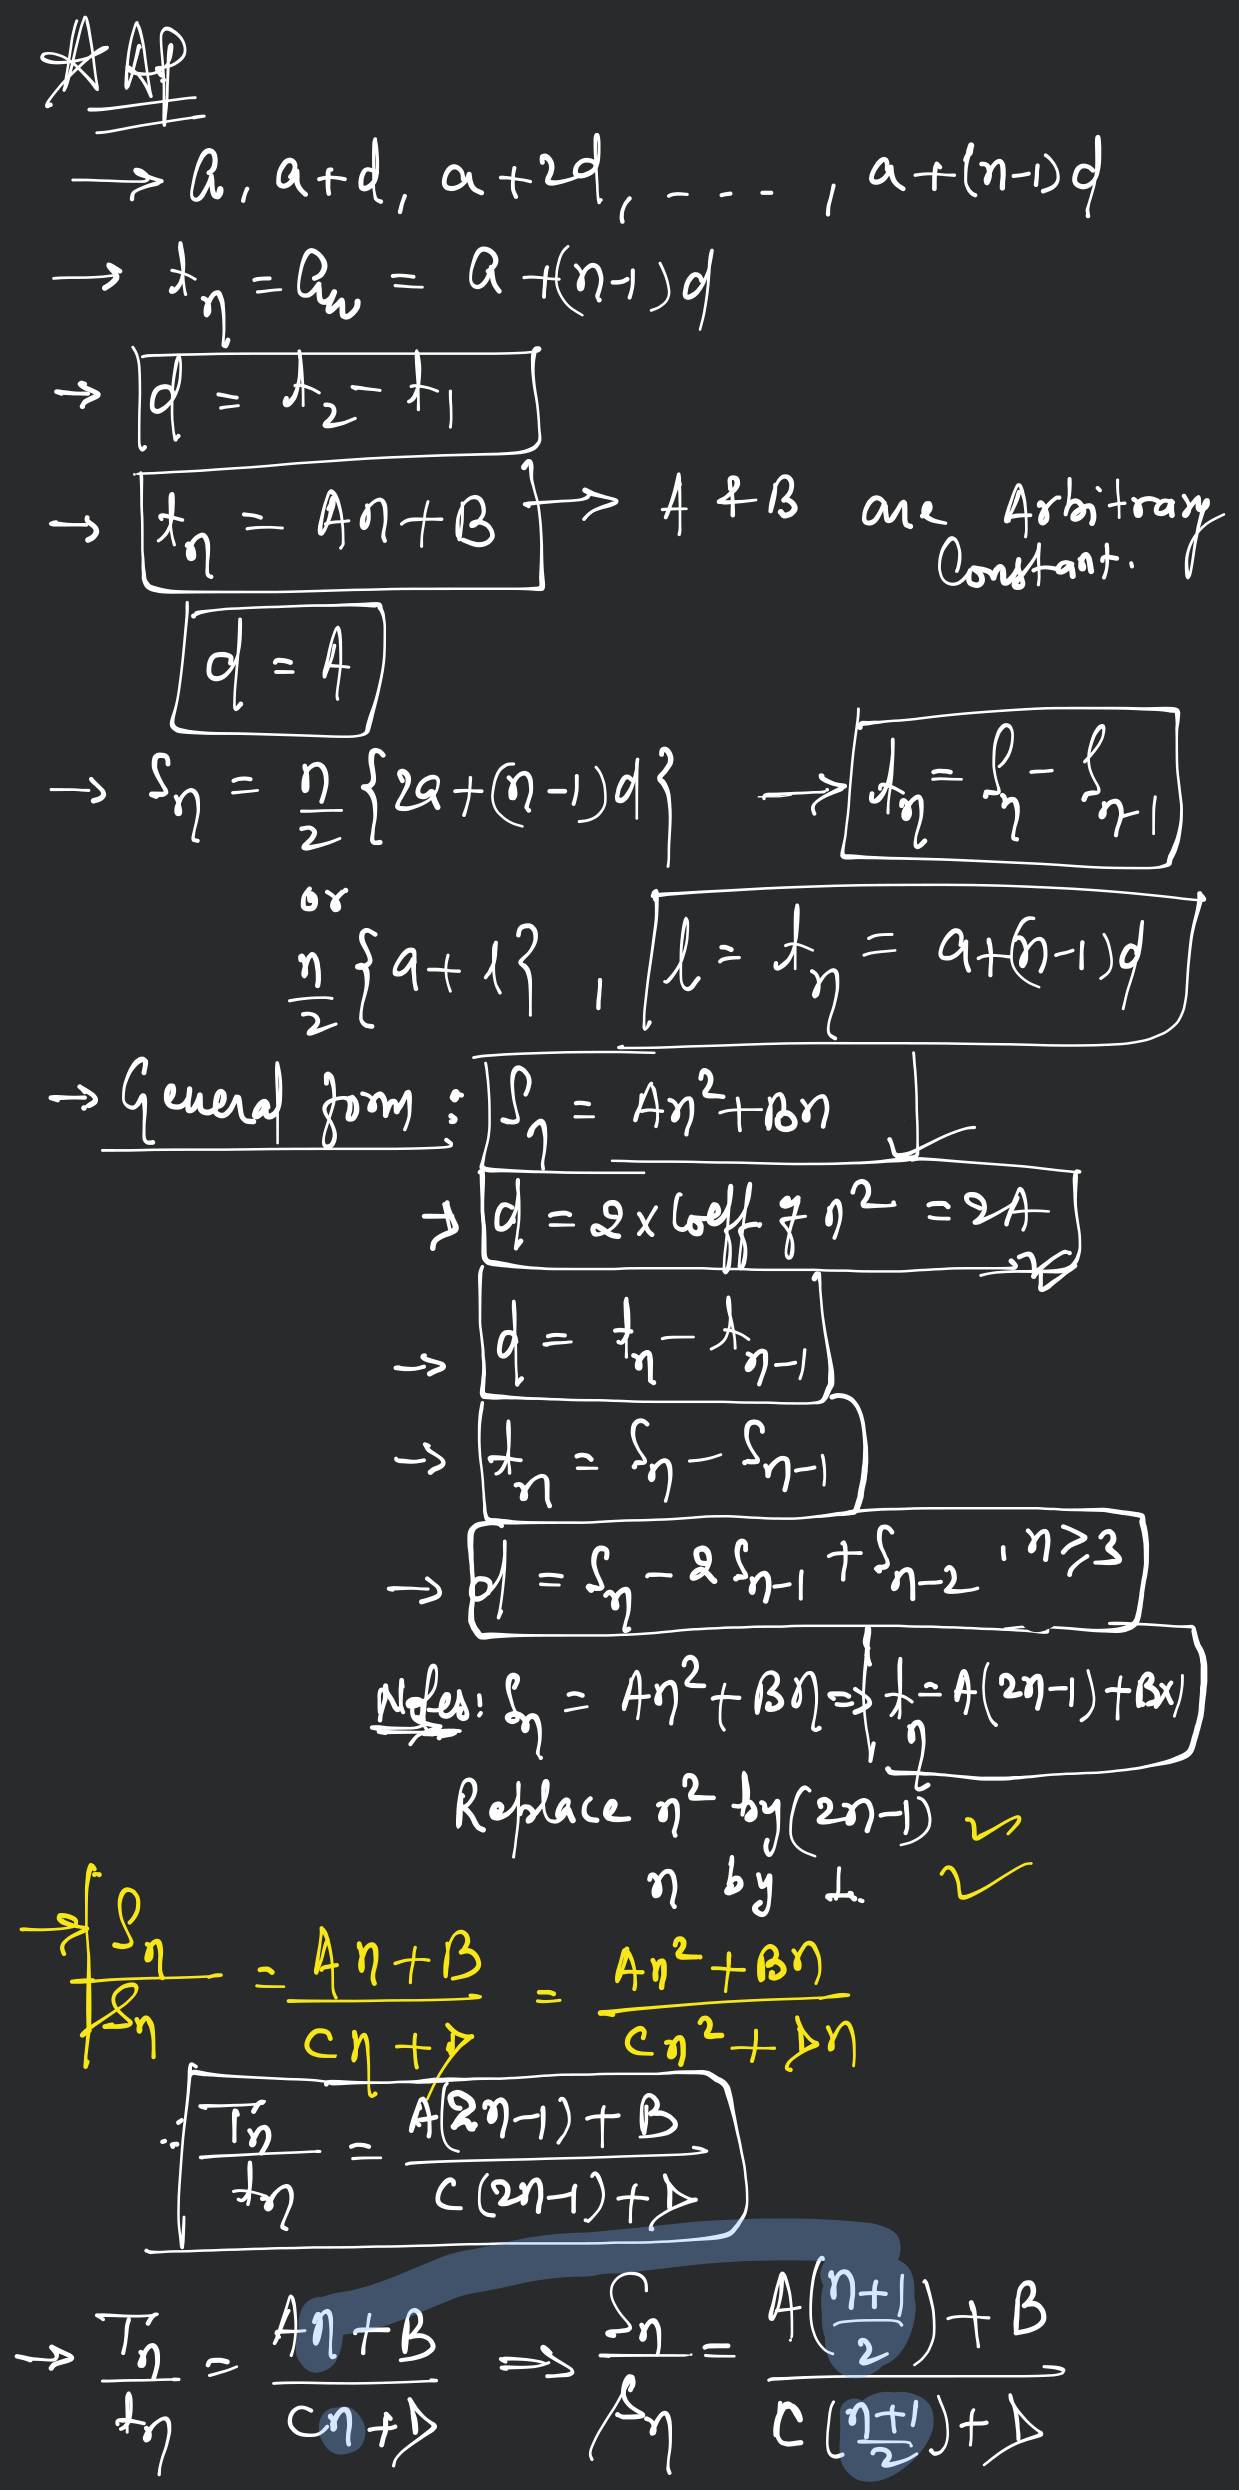 AP
→ a, a+d, a+2d, ----, a+(n-1)d
→ tₙ = aₙ = a+(n-1)d
→ d = t₂ - t₁
→ tₙ = An+B → A & B are Arbitrary
Constant.
d = A
→ Sₙ = n/2 {2a+(n-1)d} → tₙ = Sₙ - Sₙ₋₁
or
n/2 {a+l}, l = tₙ = a+(n-1)d
→ General form : Sₙ = An²+Bn
→ d = 2 x Coeff of n² = 2A
→ d = tₙ - tₙ₋₁
→ tₙ = Sₙ - Sₙ₋₁
→ d = Sₙ - 2Sₙ₋₁ + Sₙ₋₂, n ≥ 3
Notes: Sₙ = An²+Bn ⇒ tₙ = A(2n-1)+Bx1
Replace n² by (2n-1)
n by 1.
→ Sₙ/Sₙ = (An+B)/(Cn+D) = (An²+Bn)/(Cn²+Dn)
∴ Tₙ/tₙ = (A(2n-1)+B)/(C(2n-1)+D)
→ Tₙ/tₙ = (An+B)/(Cn+D) ⇒ Sₙ/Sₙ = (A((n+1)/2)+B)/(C((n+1)/2)+D)